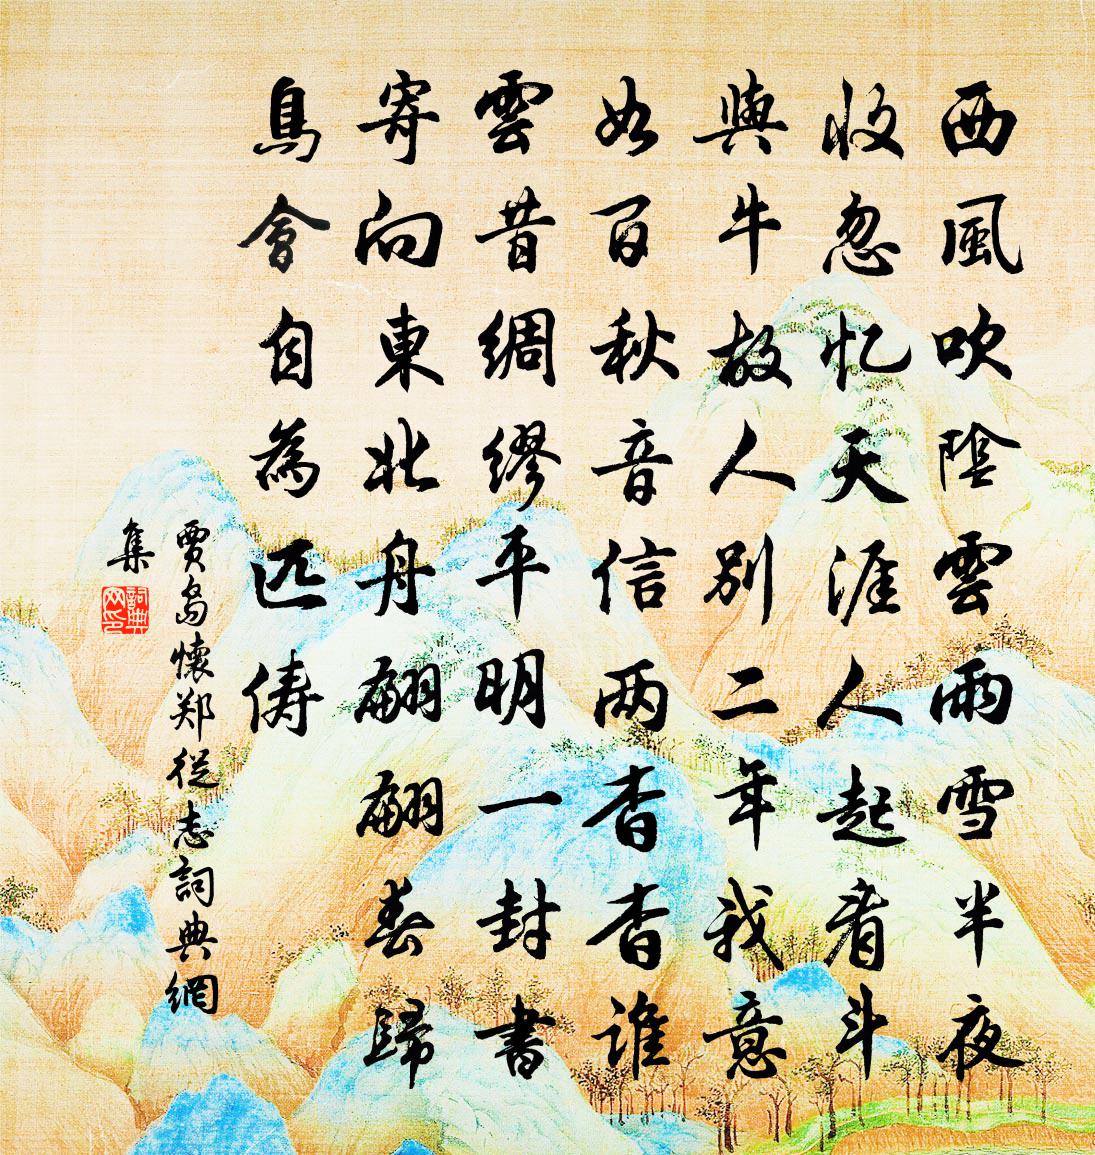 西風吹陰雲雨雪半夜
收忽忆天涯人起看斗
與牛故人别二年我意
如百秋音信两杳杳谁
雲昔绸缪平明一封書
寄向東北舟翩翩春歸
鳥會自為匹俦
賈島懷郑從志詞典網
集
詞典网印